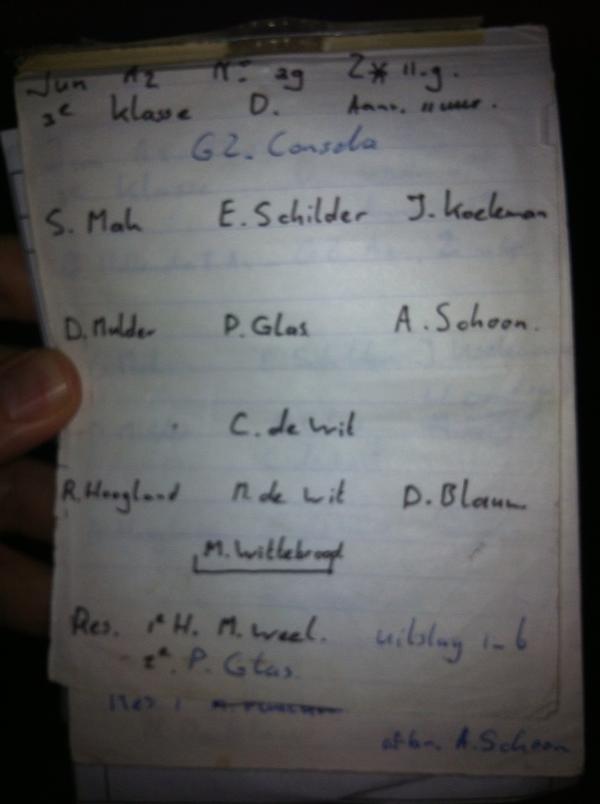 Jun A2 Nr 29 Z*11-g.
3e klasse D. Aanv. uur.
GZ. Consola
S. Mah E. Schilder J. Koekman
D. Mulder P. Glas A. Schoon.
C. de Wit
R. Hoogland N. de Wit D. Blauw
M. Wittebrood
Res. 1e H. M. Weel. uitslag 1-6
2e. P. Glas.
Res 1
afbn. A. Schoon